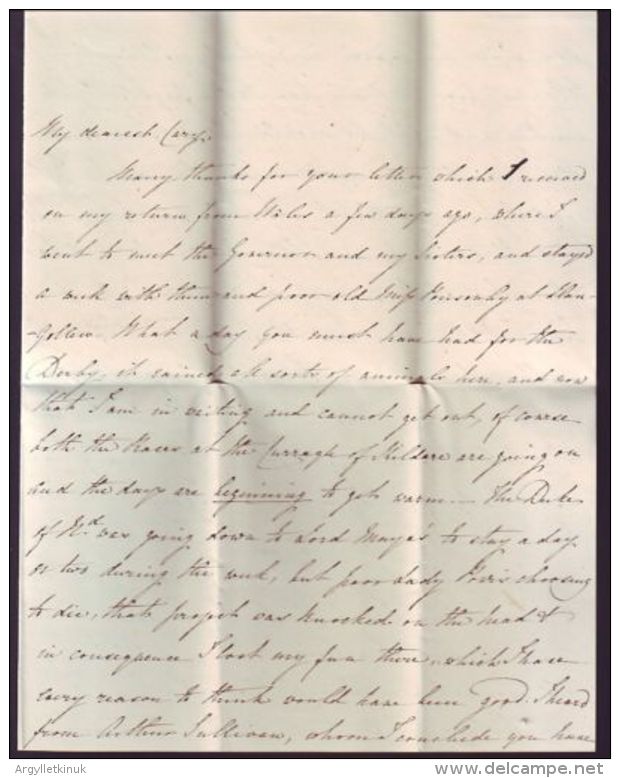 My dearest Cary,
Many thanks for your letter which I received
on my return from Wales a few days ago, where I
went to meet the Governor and my Sisters, and stayed
a week with them and poor old Miss Ponsonby at Llan-
-gollen. What a day you must have had for the
Derby, it rained all sorts of animals here, and now
that I am in waiting and cannot get out, of course
both the Races at the Curragh of Kildare are going on
and the days are beginning to get warm. — The Duke
of Nd. was going down to Lord Mayo's to stay a day
or two during the week, but poor Lady choosing
to die, that project was knocked on the head &
in consequence I lost my fun there, which I have
every reason to think would have been good. I heard
from Arthur Sullivan, whom I conclude you have
Argylletkinuk
www.delcampe.net